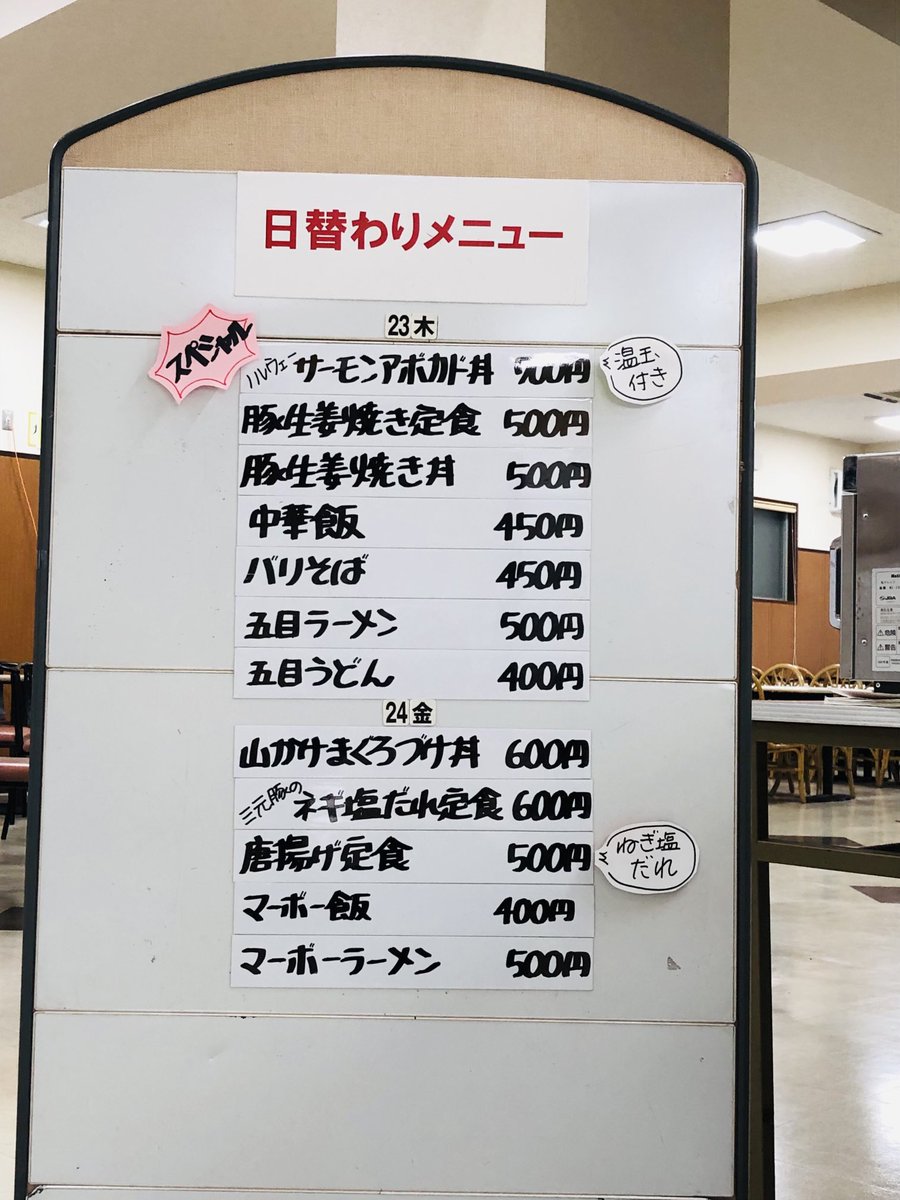 日替わりメニュー
23 木
スペシャル
ノルウェー サーモンアボカド丼 900円
温玉
付き
豚生姜焼き定食 500円
豚生姜焼き丼 500円
中華飯 450円
バリそば 450円
五目ラーメン 500円
五目うどん 400円
24 金
山かけまぐろづけ丼 600円
三元豚の ネギ塩だれ定食 600円
唐揚げ定食 500円
ねぎ塩
だれ
マーボー飯 400円
マーボーラーメン 500円
危険
警告